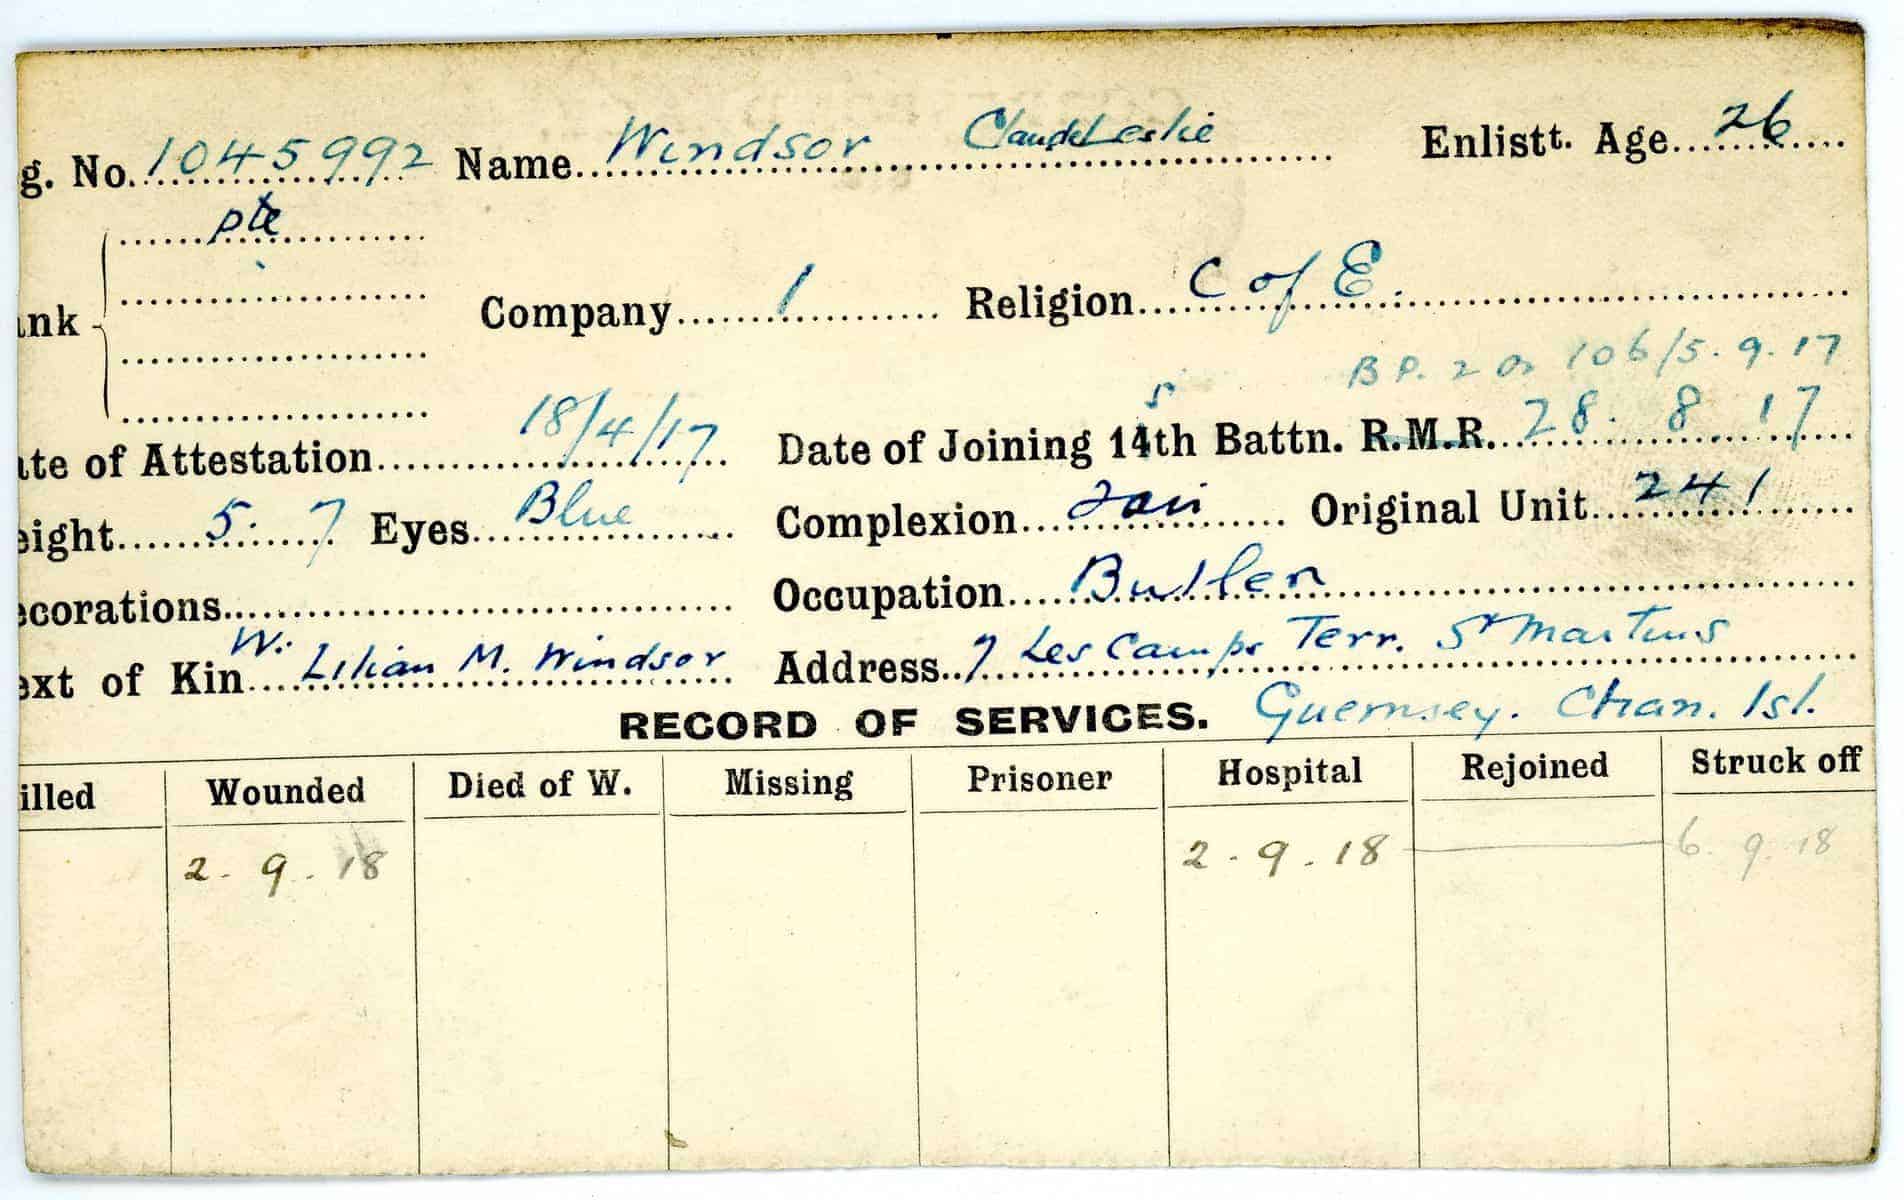 g. No. 1045992 Name Windsor Claude Leslie Enlistt. Age 26
pte
ank Company 1 Religion C of E.
B P. 2 Or 106/5.9.17
5
ate of Attestation 18/4/17 Date of Joining 14th Battn. R.M.R. 28. 8 17
eight 5. 7 Eyes Blue Complexion Fair Original Unit 241
ecorations Occupation Butler
ext of Kin W. Lilian M. Windsor Address 7 Les Camps Terr. St Martins
RECORD OF SERVICES. Guernsey. Chan. Isl.
illed Wounded Died of W. Missing Prisoner Hospital Rejoined Struck off
2. 9. 18 2. 9. 18 6. 9. 18